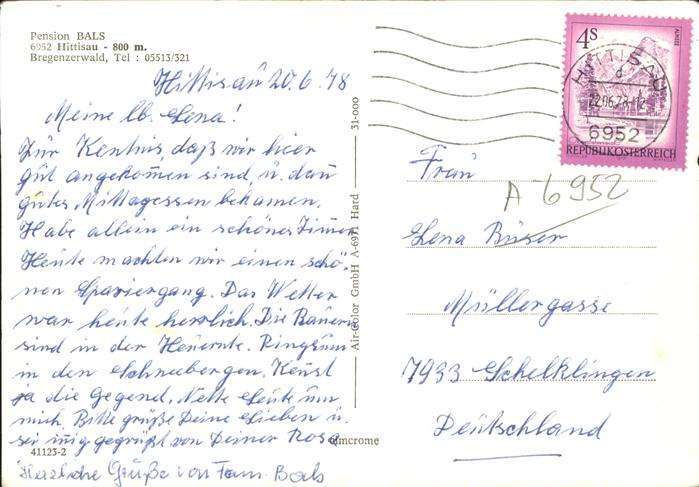 Pension BALS
6952 Hittisau - 800 m.
Bregenzerwald, Tel : 05513/321
Hittisau 20.6.78
Meine lb. Lena!
Zur Kentnis, daß wir hier
gut angekommen sind, u. dan
gutes Mittagessen bekamen.
Habe allein ein schönes Zimer
Heute machten wir einen schö-
nen Spaziergang. Das Wetter
war heute herrlich. Die Bauern
sind in der Heuernte. Ringsum
in den Schneebergen. Kenst
ja die Gegend. Nette Leute um
mich. Bitte grüße Deine Lieben u.
sei inig gegrüßt von Deiner Rosa
41123-2
Herzliche Grüße von Fam Bals
31-000
Air-Color GmbH A-6971 Hard
Qmcrome
4S
ALMSEE
HITTISAU
d
22.06.78-12
6952
REPUBLIK ÖSTERREICH
A 6952
Frau
Lena Büser
Müllergasse
7933 Schelklingen
Deutschland